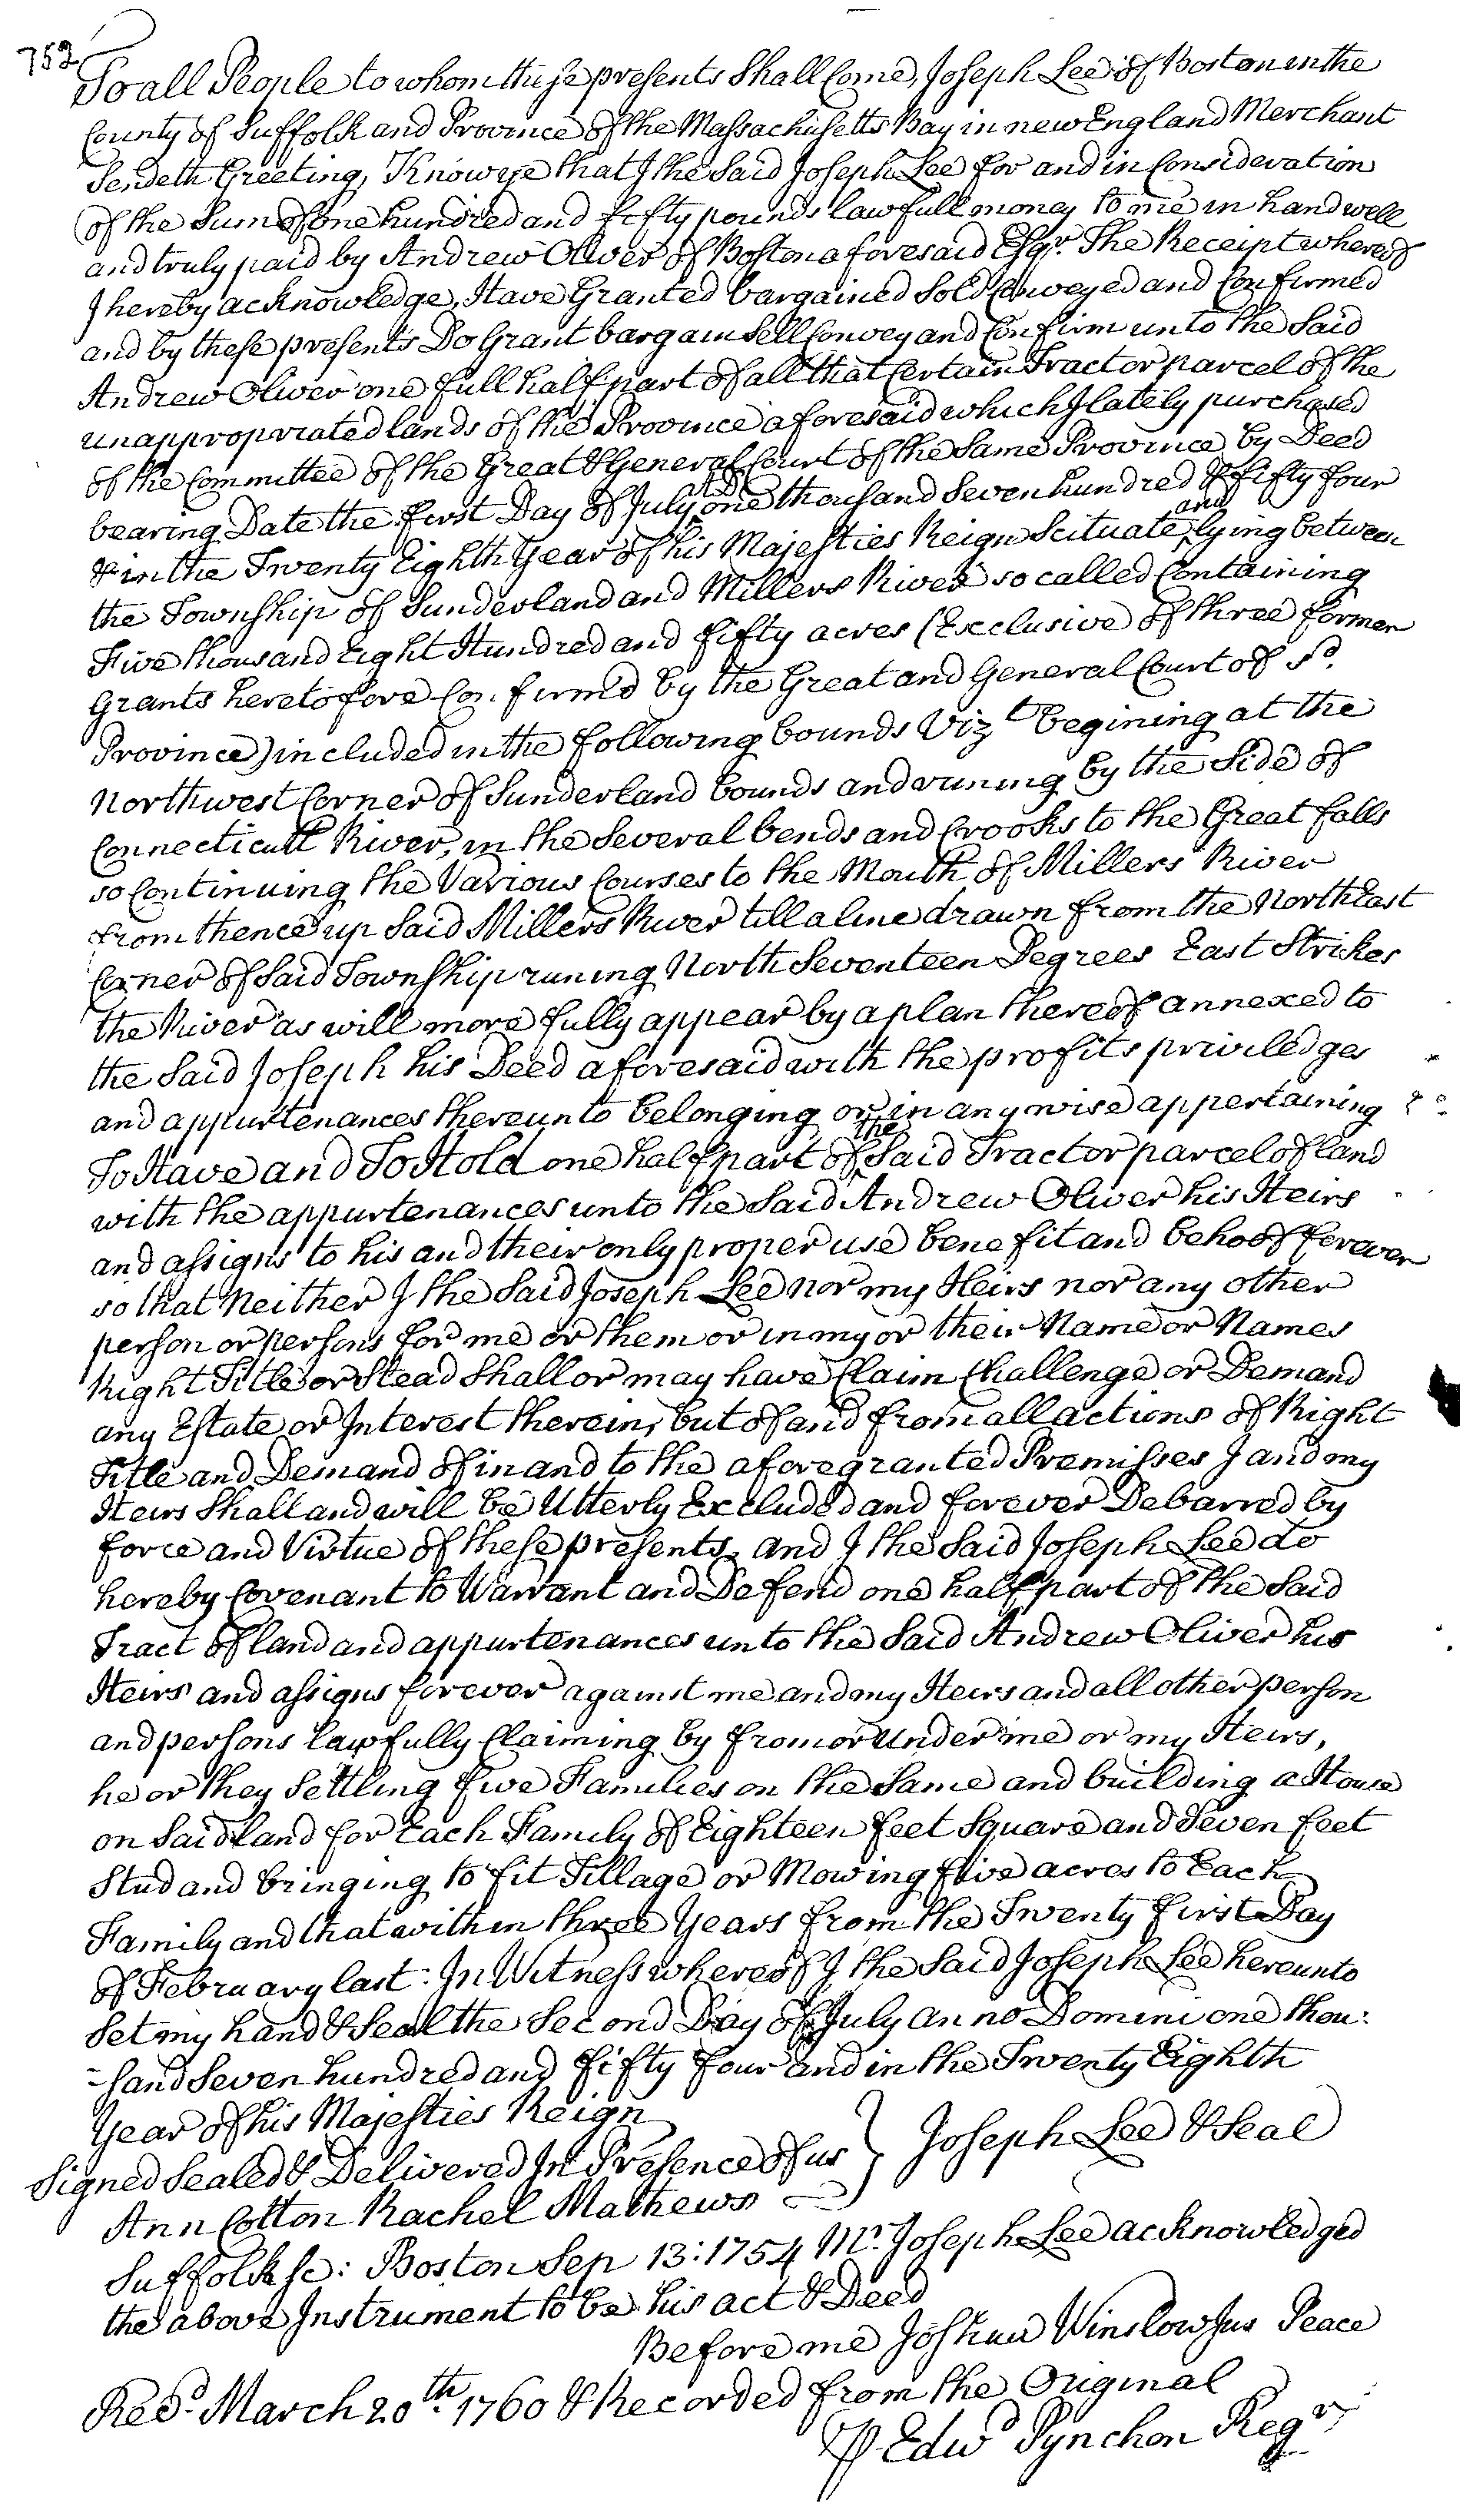 752
To all People to whom these presents Shall Come, Joseph Lee of Boston in the
County of Suffolk and Province of the Massachusetts Bay in new England Merchant
Sendeth Greeting, Know ye that I the Said Joseph Lee for and in Consideration
of the Sum of one hundred and fifty pounds lawfull money to me in hand well
and truly paid by Andrew Oliver of Boston aforesaid Esqr. The Receipt whereof
I hereby acknowledge, Have Granted bargained Sold Conveyed and Confirmed
and by these presents Do Grant bargain Sell Convey and Confirm unto the Said
Andrew Oliver one full half part of all that Certain Tract or parcel of the
unappropriated lands of the Province aforesaid which I lately purchased
of the Committee of the Great & General Court of the Same Province by Deed
bearing Date the first Day of July AD one thousand Seven hundred & fifty four
& in the Twenty Eighth Year of his Majesties Reign Scituate and lying between
the Township of Sunderland and Millers River so called Containing
Five thousand Eight Hundred and fifty acres (Exclusive of three former
Grants heretofore Confirmd by the Great and General Court of sd.
Province) included in the following bounds Vizt begining at the
Northwest Corner of Sunderland bounds and runing by the Side of
Connecticutt River, in the Several bends and Crooks to the Great falls
so Continuing the Various Courses to the Mouth of Millers River
from thence up Said Millers River till a line drawn from the North East
Corner of Said Township runing North Seventeen Degrees East Strikes
the River as will more fully appear by a plan thereof annexed to
the Said Joseph his Deed aforesaid with the profits priviledges
and appurtenances thereunto belonging or in any wise appertaining
To Have and To Hold one half part of the Said Tract or parcel of land
with the appurtenances unto the Said Andrew Oliver his Heirs
and assigns to his and their only proper use benefit and behoof forever
so that Neither I the Said Joseph Lee nor my Heirs nor any other
person or persons for me or them or in my or their Name or Names
Right Title or Stead Shall or may have Claim Challenge or Demand
any Estate or Interest therein, but of and from all actions of Right
Title and Demand of in and to the aforegranted Premisses I and my
Heirs Shall and will be Utterly Excluded and forever Debarred by
force and Virtue of these presents. and I the Said Joseph Lee do
hereby Covenant to Warrant and Defend one half part of the Said
Tract of land and appurtenances unto the Said Andrew Oliver his
Heirs and assigns forever against me and my Heirs and all other person
and persons lawfully Claiming by from or Under me or my Heirs,
he or they Settling five Families on the Same and building a House
on Said land for Each Family of Eighteen feet Square and Seven feet
Stud and bringing to fit Tillage or Mowing five acres to Each
Family and that within three Years from the Twenty first Day
of February last: In Witness whereof I the Said Joseph Lee hereunto
Set my hand & Seal the Second Day of July Anno Domini one thou:
-sand Seven hundred and fifty four and in the Twenty Eighth
Year of his Majesties Reign
Signed Sealed & Delivered In Presence of us } Joseph Lee & Seal
Ann Cotton Rachel Mathews
Suffolk sc: Boston Sep 13: 1754 Mr. Joseph Lee acknowledged
the above Instrument to be his act & Deed
Before me Joshua Winslow Jus Peace
Recd. March 20th. 1760 & Recorded from the Original
⅌ Edwd Pynchon Regr